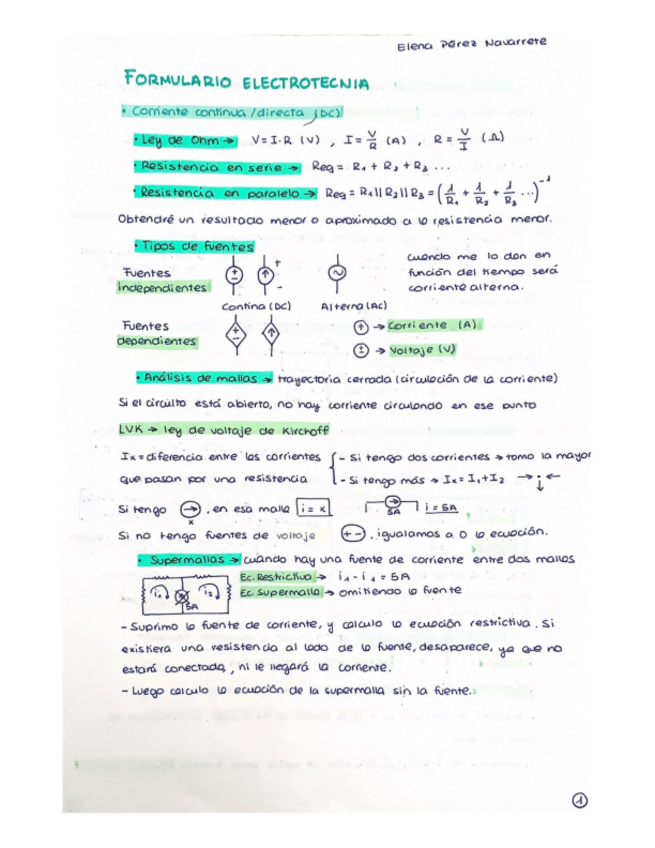 Elena Pérez Navarrete
FORMULARIO ELECTROTECNIA
• Corriente continua/directa (DC)
• Ley de Ohm → V=I·R (V) , I = V/R (A) , R = V/I (Ω)
• Resistencia en serie → Req = R1 + R2 + R3 ...
• Resistencia en paralelo → Req = R1||R2||R3 = (1/R1 + 1/R2 + 1/R3 ...)^-1
Obtendré un resultado menor o aproximado a la resistencia menor.
• Tipos de fuentes
Fuentes independientes
+ -
Contina (DC)
Alterna (AC)
cuando me lo dan en
función del tiempo será
corriente alterna.
Fuentes dependientes
→ Corriente (A)
→ Voltaje (V)
• Análisis de mallas → trayectoria cerrada (circulación de la corriente)
Si el circuito está abierto, no hay corriente circulando en ese punto
LVK → ley de voltaje de Kirchoff
Ix = diferencia entre las corrientes
que pasan por una resistencia
- Si tengo dos corrientes → tomo la mayor
- Si tengo más → Ix = I1 + I2
Si tengo → x , en esa malla i = x
5A i = 5A
Si no tengo fuentes de voltaje + - , igualamos a 0 la ecuación.
• Supermallas → cuando hay una fuente de corriente entre dos mallas
i1 i2 5A
Ec. Restrictiva → i1 - i1 = 5A
Ec. Supermalla → omitiendo la fuente
- Suprimo la fuente de corriente, y calculo la ecuación restrictiva. Si
existiera una resistencia al lado de la fuente, desaparece, ya que no
estará conectada, ni le llegará la corriente.
- Luego calculo la ecuación de la supermalla sin la fuente.
1